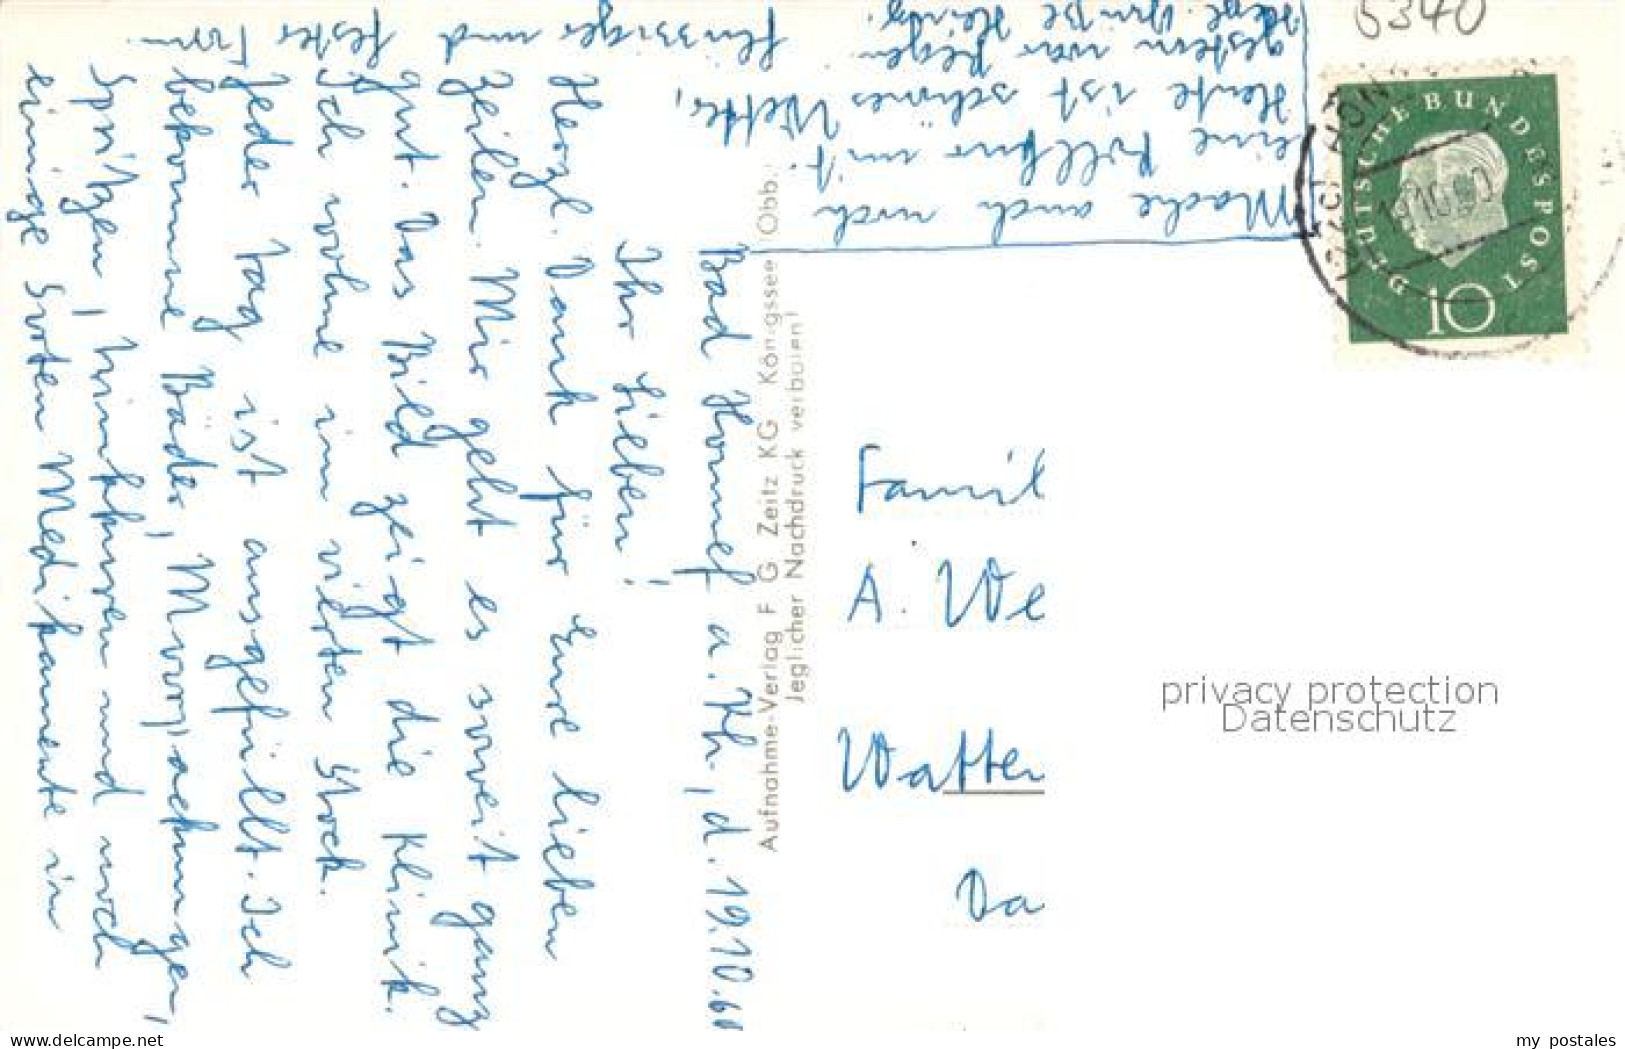 Bad Honnef a. Rh., d. 19.10.60
Ihr Lieben!
Herzl. Dank für Eure lieben
Zeilen. Mir geht es soweit ganz
gut. Das Bild zeigt die Klinik.
Ich wohne im vierten Stock.
Jeder Tag ist ausgefüllt. Ich
bekomme Bäder, Moorpackungen,
Spritzen, Trinkkuren und noch
einige Sorten Medikamente in
flüssiger und fester Form.
Mache auch noch
eine Rollkur mit.
Heute ist schönes Wetter,
gestern war Regen.
Herzl. Grüße
Aufnahme-Verlag F G Zeitz KG Königssee/Obb.
Jeglicher Nachdruck verboten!
5340
DEUTSCHE BUNDESPOST
10
19.10.60
Famil
A. We
Watten
Da
privacy protection
Datenschutz
www.delcampe.net
my_postales